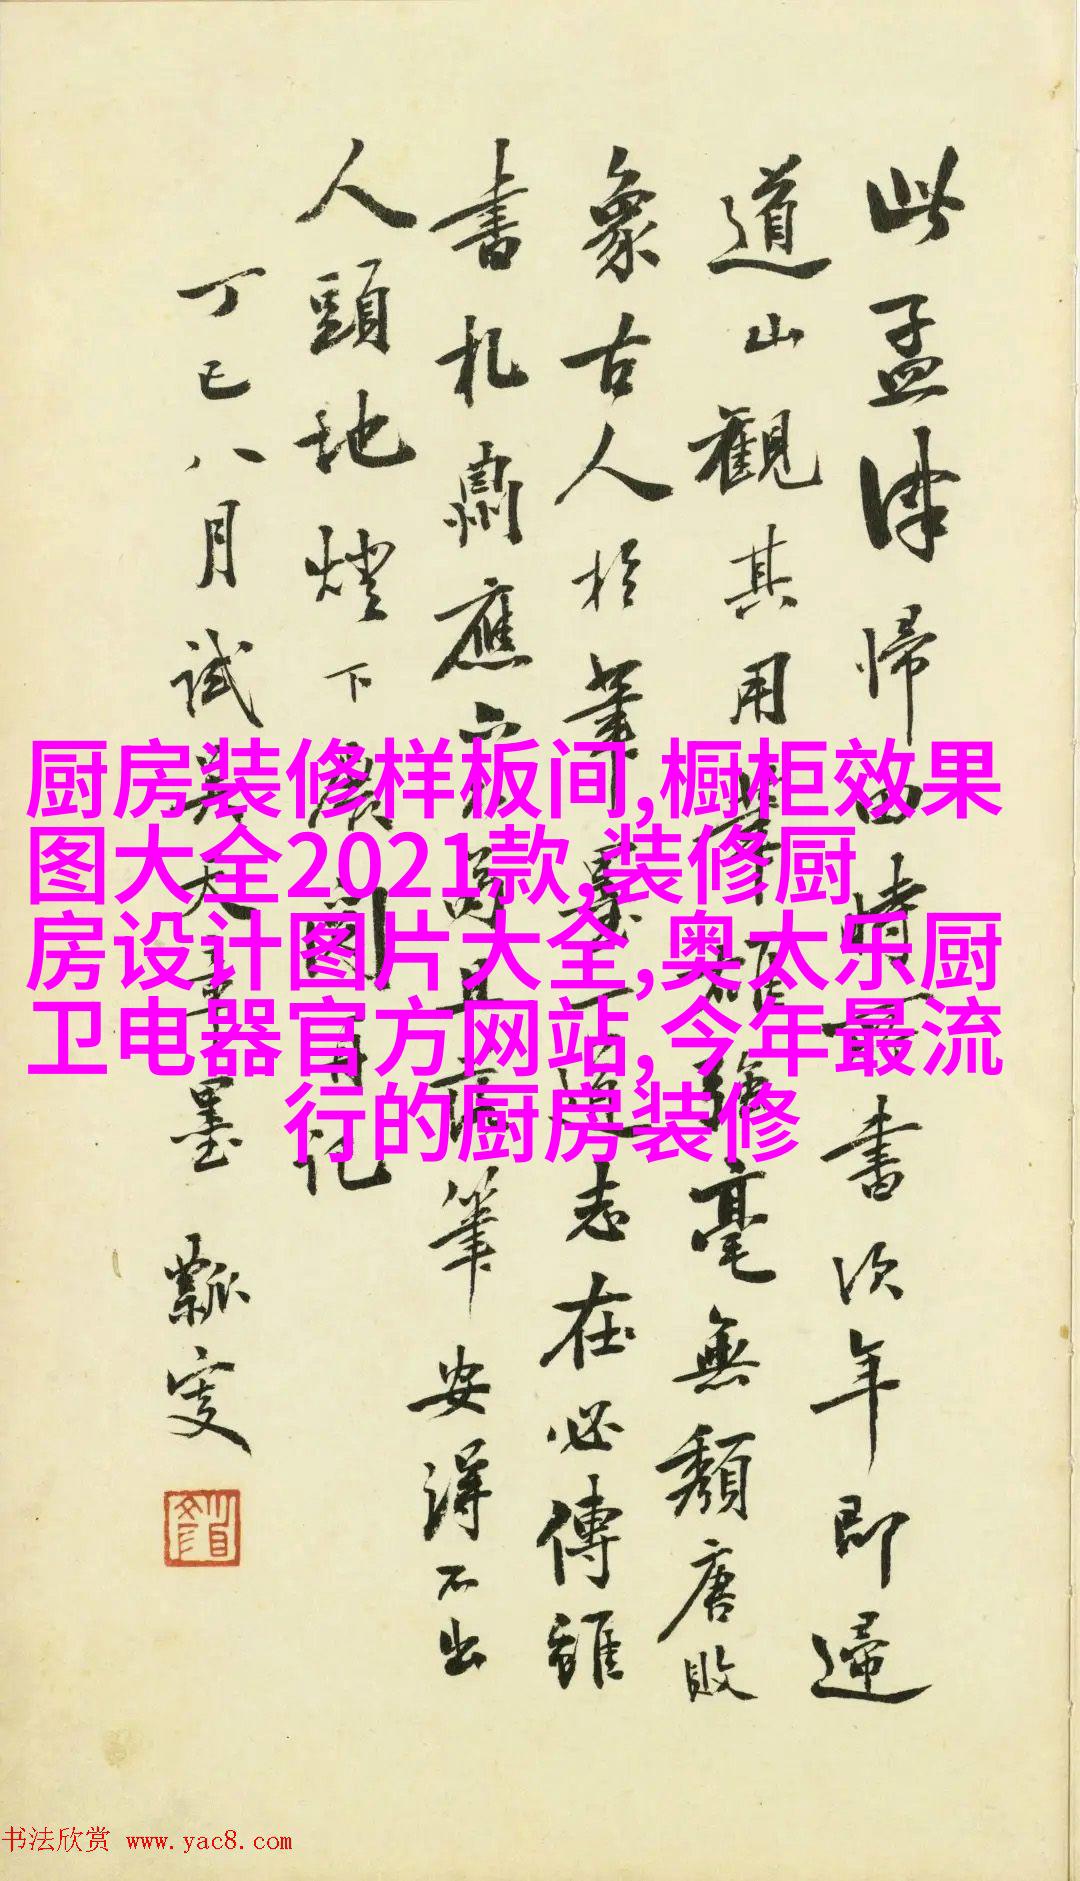 此孟津歸田時書次年即歸
道山觀其用筆雄強毫無頹唐敗
象古人於筆墨一道志在必傳雖
書札肅應筆安得不出
人頭地燈下記
丁巳八月試天章墨 瓢叟
厨房装修样板间,橱柜效果
图大全2021款,装修厨
房设计图片大全,奥太乐厨
卫电器官方网站,今年最流
行的厨房装修
书法欣赏 www.yac8.com